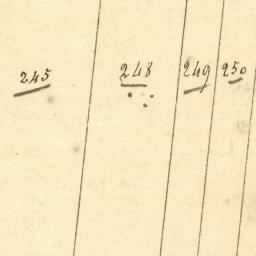 245 248 249 250